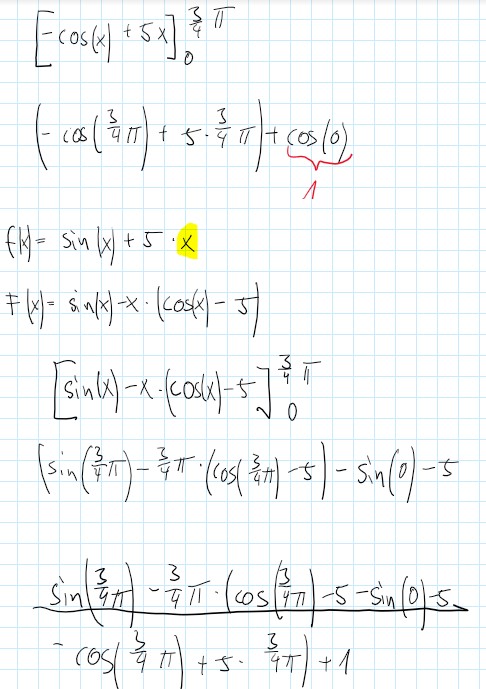 [-cos(x) + 5x]₀^(3/4 π)
(-cos(3/4 π) + 5 · 3/4 π) + cos(0)
1
f(x) = sin(x) + 5 · x
F(x) = sin(x) - x · (cos(x) - 5)
[sin(x) - x · (cos(x) - 5]₀^(3/4 π)
(sin(3/4 π) - 3/4 π · (cos(3/4 π) - 5) - sin(0) - 5
sin(3/4 π) - 3/4 π · (cos(3/4 π) - 5 - sin(0) - 5
- cos(3/4 π) + 5 · 3/4 π) + 1